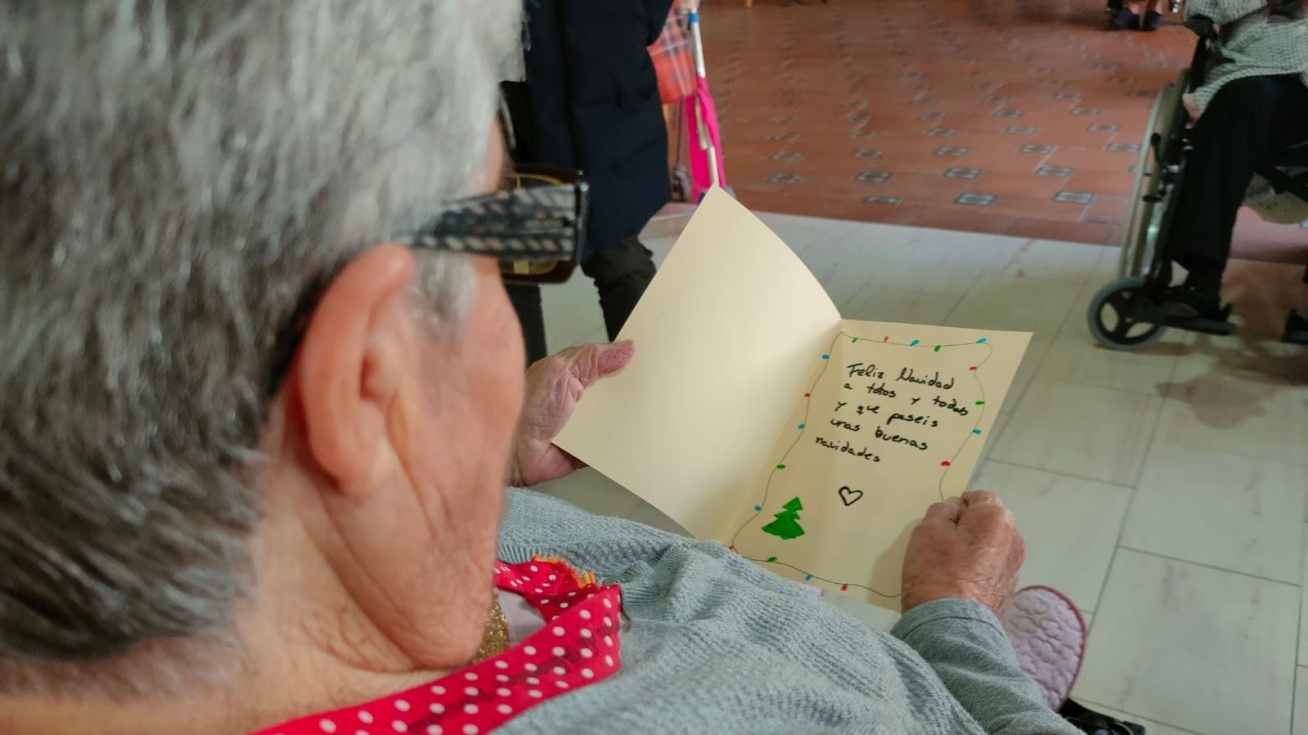 Feliz Navidad
a todos y todas
y que paseis
unas buenas
navidades